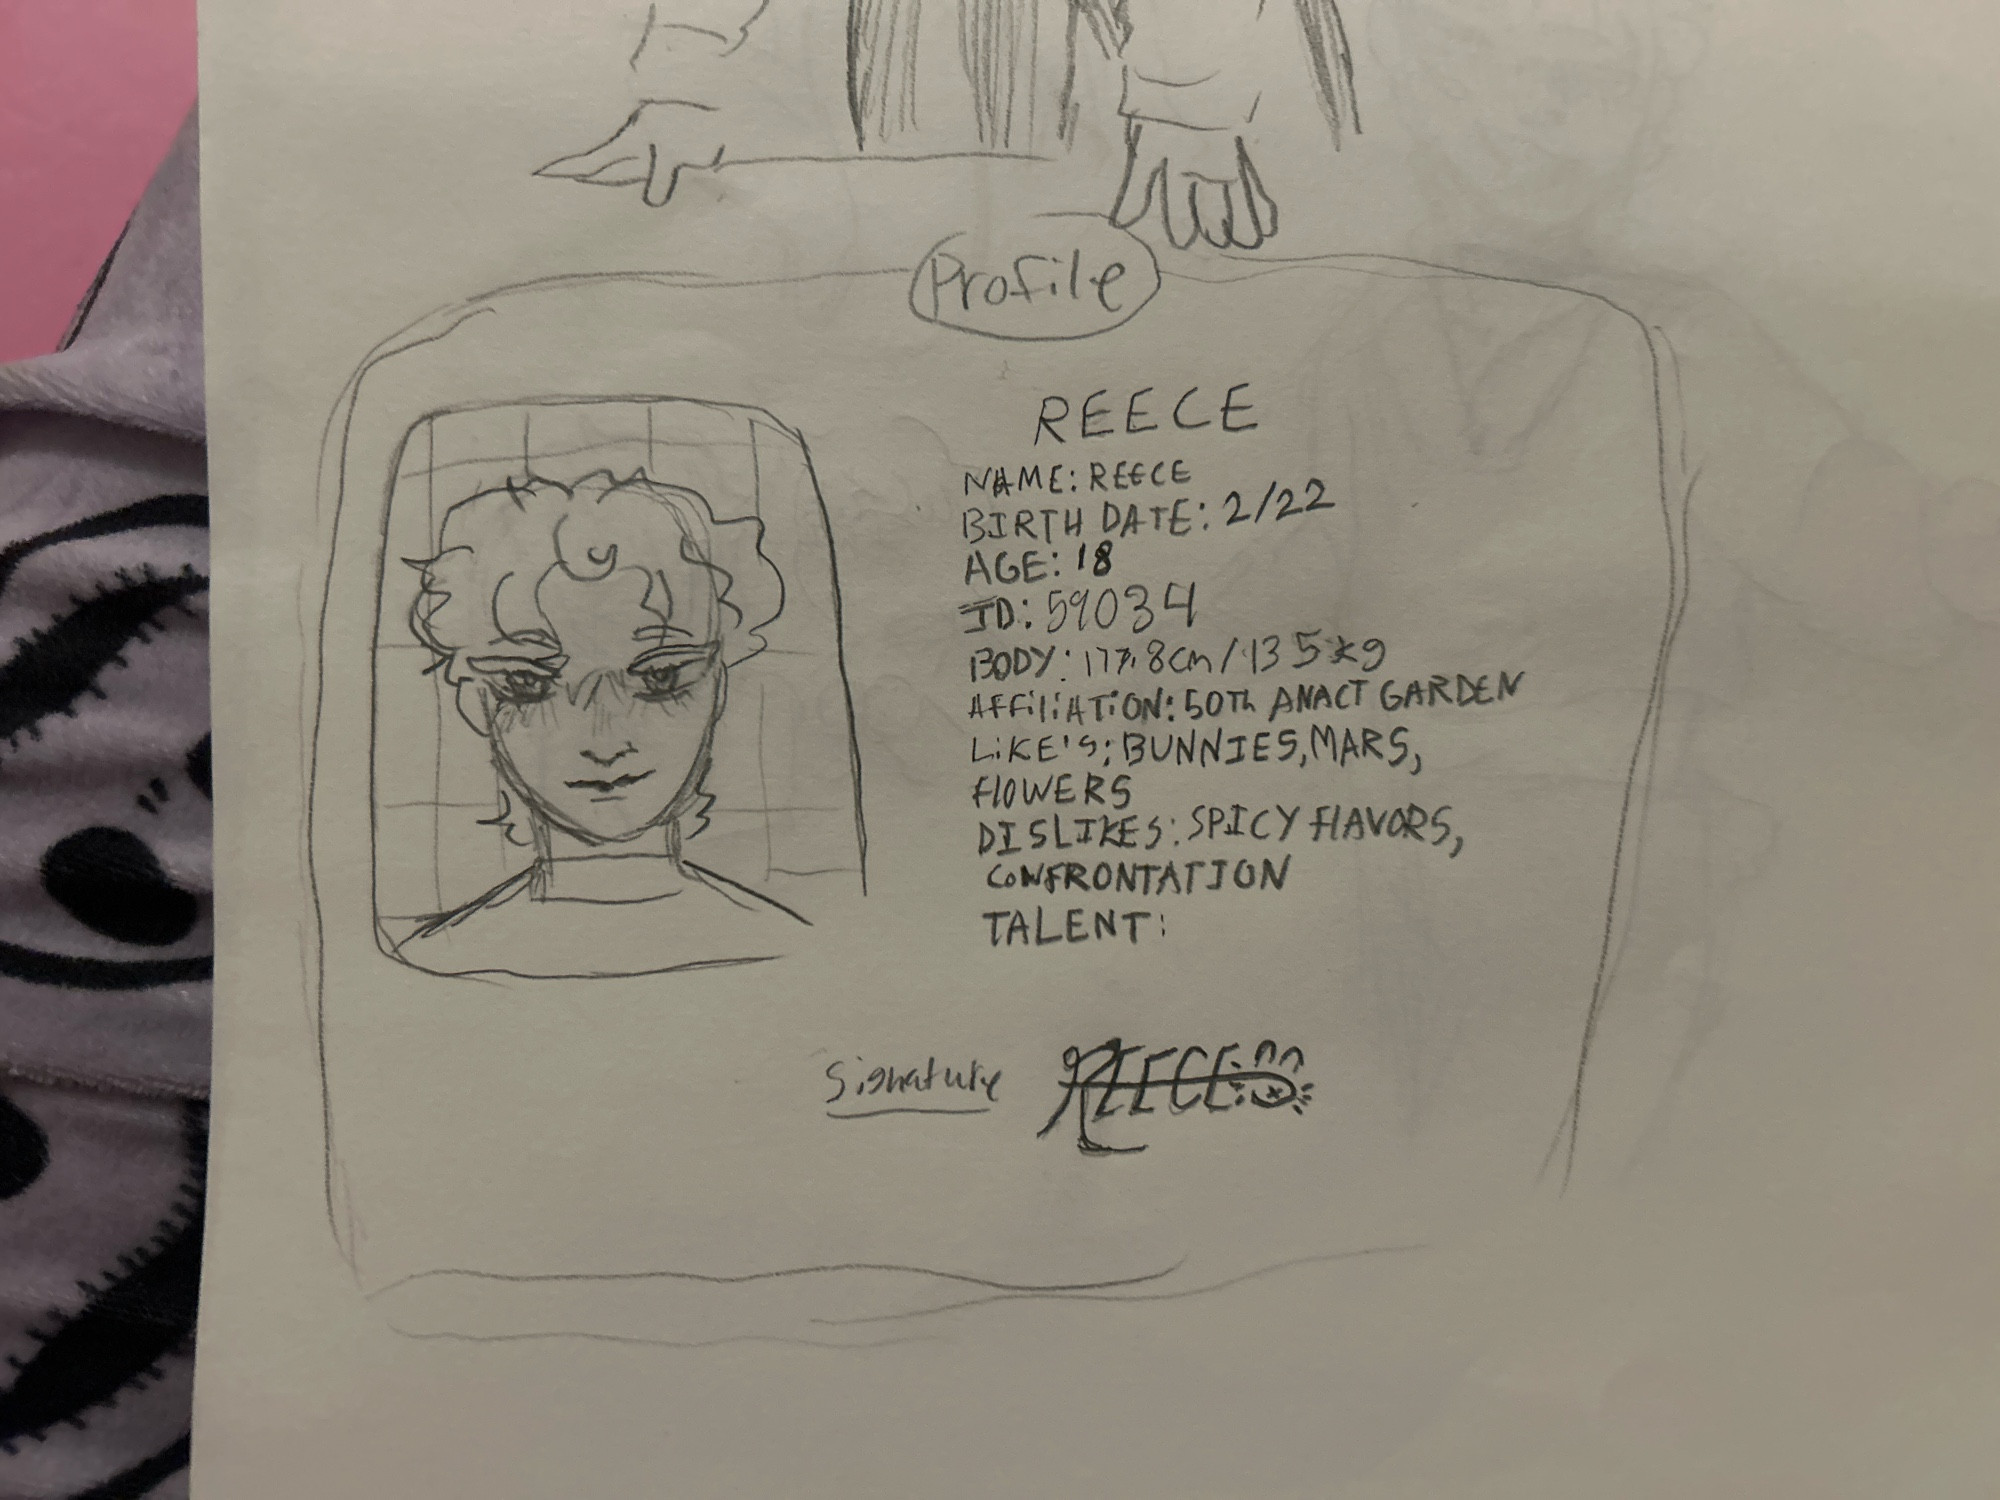 Profile
REECE
NAME: REECE
BIRTH DATE: 2/22
AGE: 18
ID: 59034
BODY: 177.8cm/135kg
AFFiliATiON: 50Th ANACT GARDEN
LiKE'S: BUNNIES, MARS,
FlOWERS
DISLIKES: SPICY FlAVORS,
CONFRONTATION
TALENT:
Signature REECE